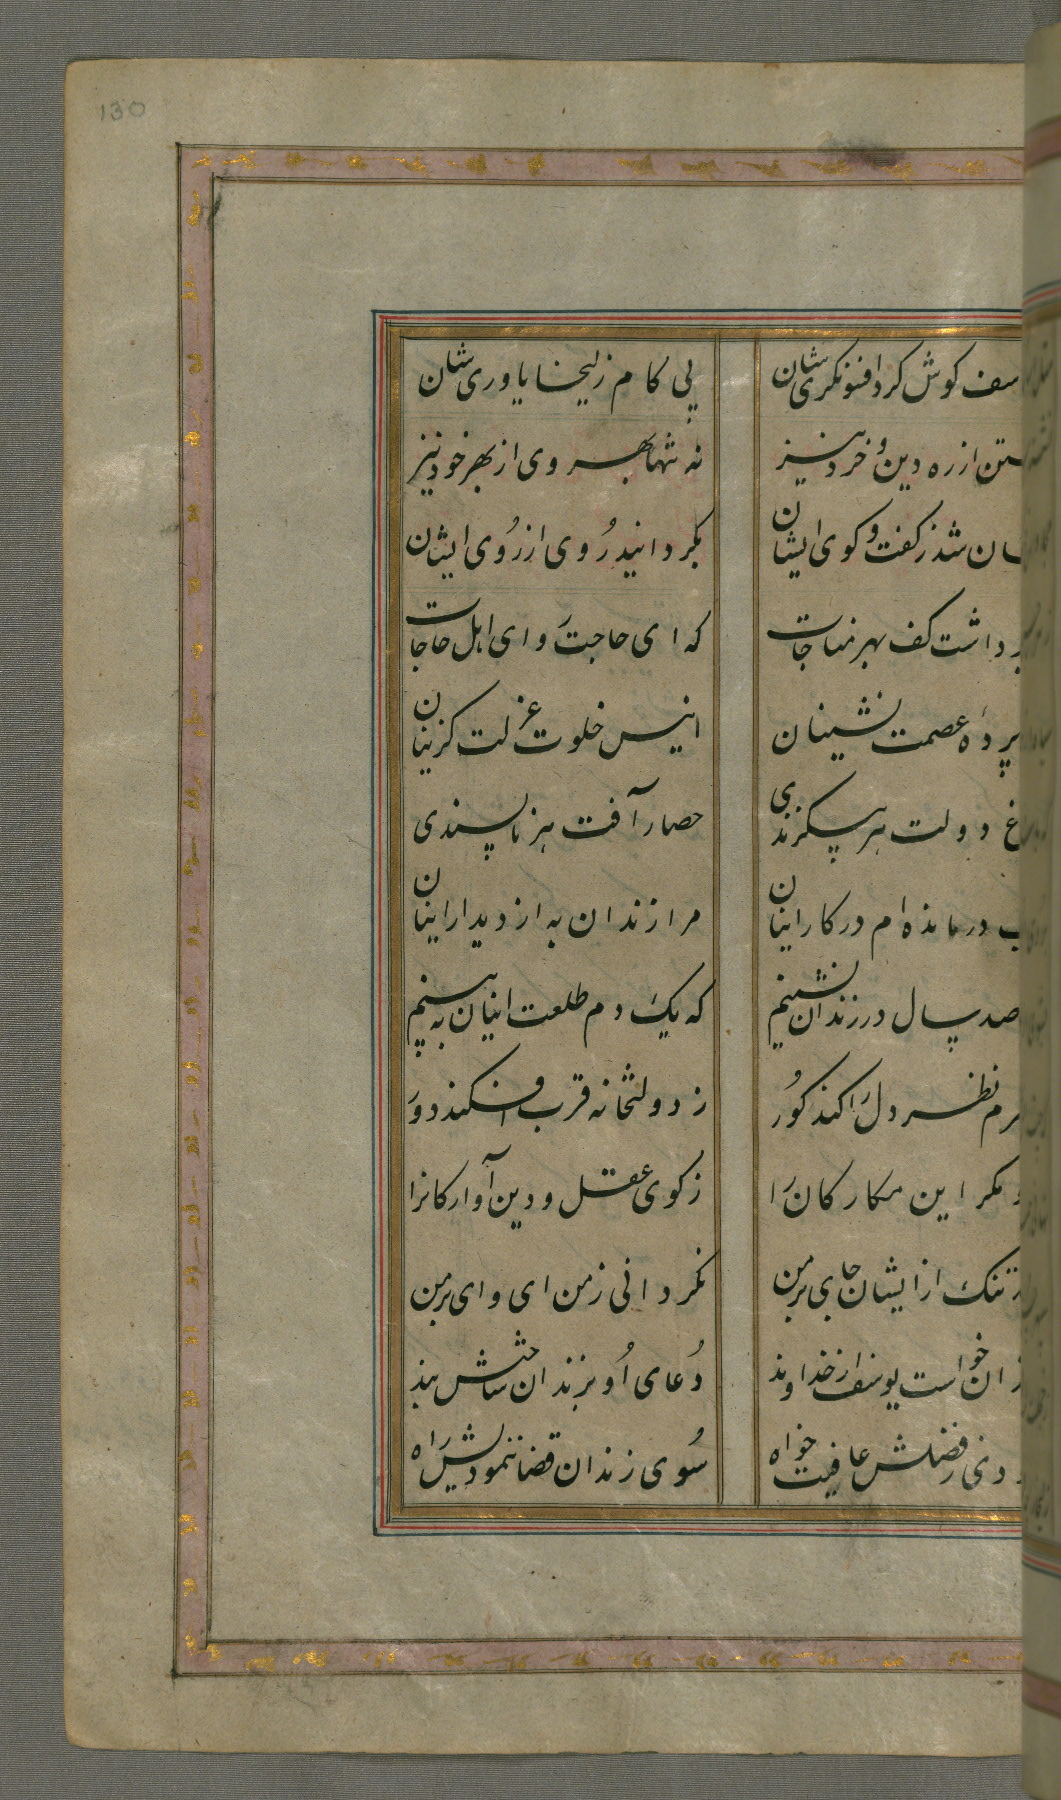 130
سف کوش کرد افسونکری شان
پی کام زلیخا یاوری شان
ستن از ره دین و خرد نیز
نه تنها بهر وی از بهر خود نیز
سان شد ز کفت و کوی ایشان
بکردانید روی از روی ایشان
برداشت کف بهر مناجات
که ای حاجت روای اهل حاجات
پرده عصمت نشینان
انیس خلوت عزلت کزینان
غ دولت هر بی کزندی
حصار آفت هر ناپسندی
ب درمانده ام در کار اینان
مرا زندان به از دیدار اینان
صد سال در زندان نشینم
که یک دم طلعت اینان ببینم
رم نظر دل را کند کور
ز دولتخانه قرب افکند دور
مکر این مکارکان را
ز کوی عقل و دین آوارکانرا
تنک از ایشان جای بر من
نکردانی ز من ای وای بر من
زندان خواست یوسف از خداوند
دعای او بزندان ساختش بند
ودی ز فضلش عافیت خواه
سوی زندان قضا ننمودیش راه